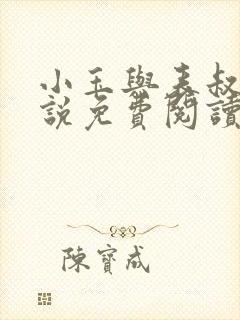 小玉與表叔
說免費閱讀
陳寶成